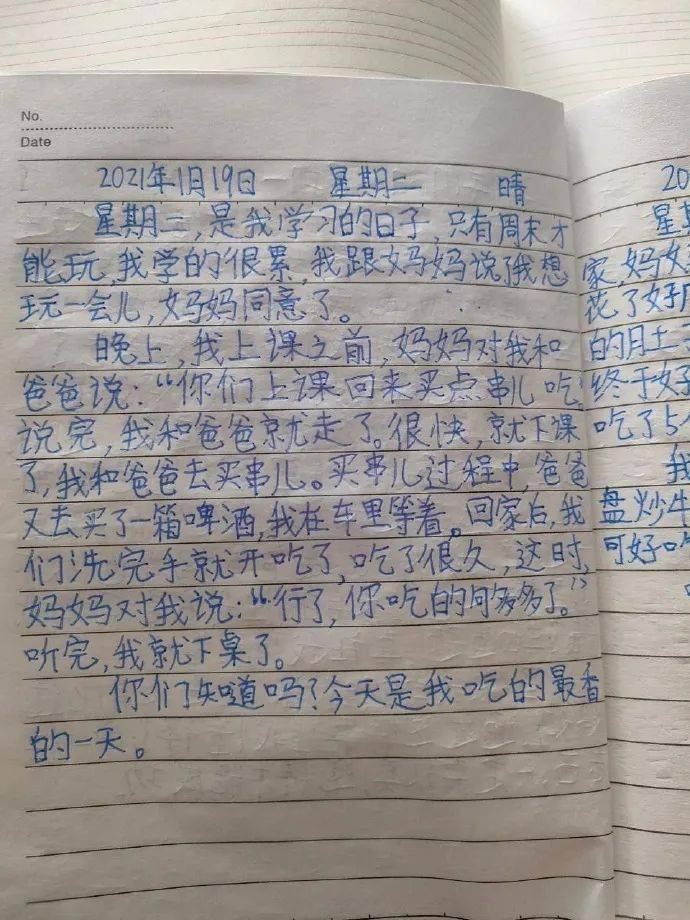 No.
Date
2021年1月19日 星期二 晴
星期二,是我学习的日子,只有周末才
能玩,我学的很累,我跟妈妈说了我想
玩一会儿,妈妈同意了。
晚上,我上课之前,妈妈对我和
爸爸说:“你们上课回来买点串儿吃
说完,我和爸爸就走了。很快,就下课
了,我和爸爸去买串儿。买串儿过程中,爸爸
又去买了一箱啤酒,我在车里等着。回家后,我
们洗完手就开吃了,吃了很久,这时,
妈妈对我说:“行了,你吃的够多了。”
听完,我就下桌了。
你们知道吗?今天是我吃的最香
的一天。
20
星期
家,妈妈
花了好
的月土
终于好
吃了5个
我
盘炒牛
可好吃